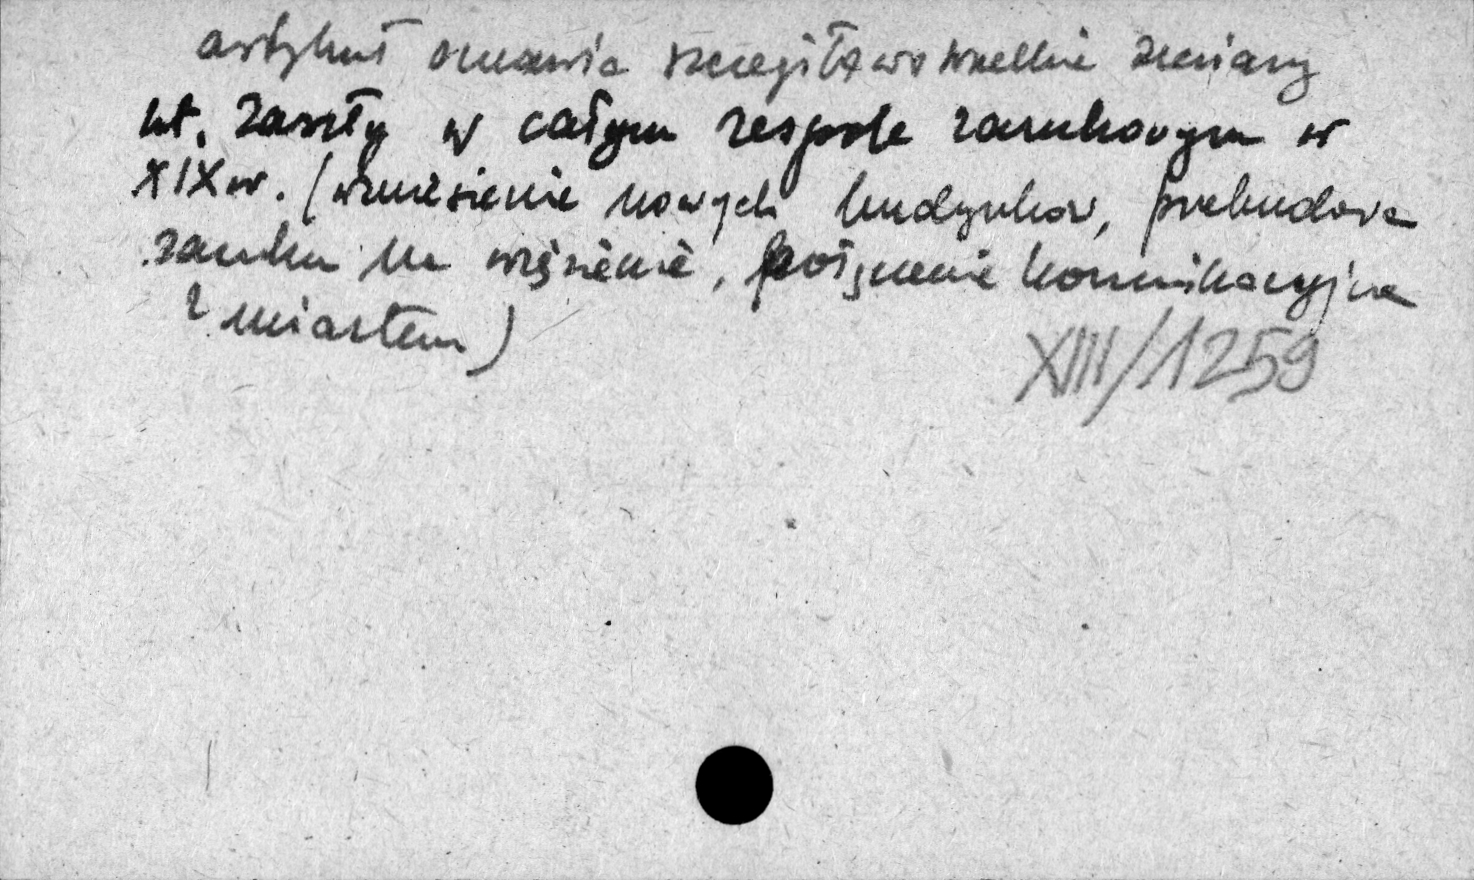 artykuł omawia szczegółowo wszelkie zmiany
kt. zaszły w całym zespole zamkowym w
XIX w. (wzniesienie nowych budynków, przebudowa
zamku na więzienie, połączenie komunikacyjne
z miastem)
XIII/1259